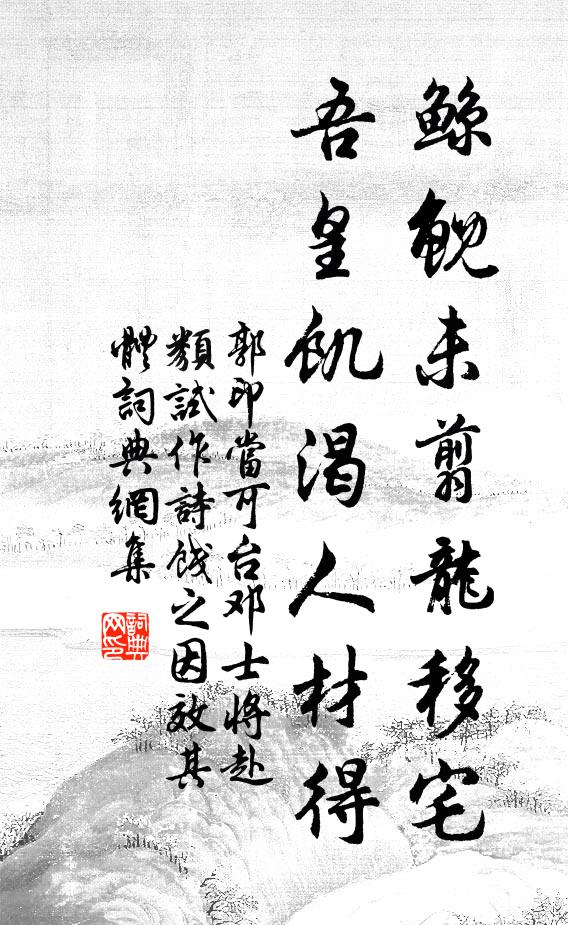 鲸鲵未翦龍移宅
吾皇飢渴人材得
郭印當可台邓士將赴
類試作詩餞之因效其
體詞典網集
詞典网印